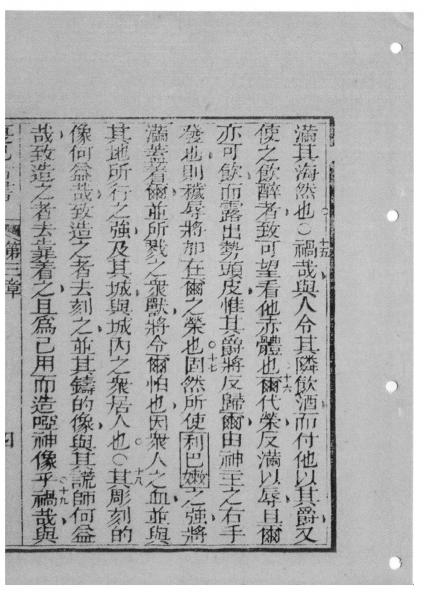 滿其海然也〇禍哉與人令其隣飲酒而付他以其爵又
使之飲醉者致可望看他赤體也爾代榮反滿以辱且爾
亦可飲而露出勢頭皮惟其爵將反歸爾由神主之右手
發也則穢辱將加在爾之榮也固然所使利巴嫩之強將
滿蓋着爾並所戮之衆獸將令爾怕也因衆人之血並與
其地所行之強及其城與城內之衆居人也〇其彫刻的
像何益哉致造之者去刻之並其鑄的像與其謊師何益
哉致造之者去靠着之且爲己用而造啞神像乎禍哉與
第三章
十五
十六
十七
十八
十九